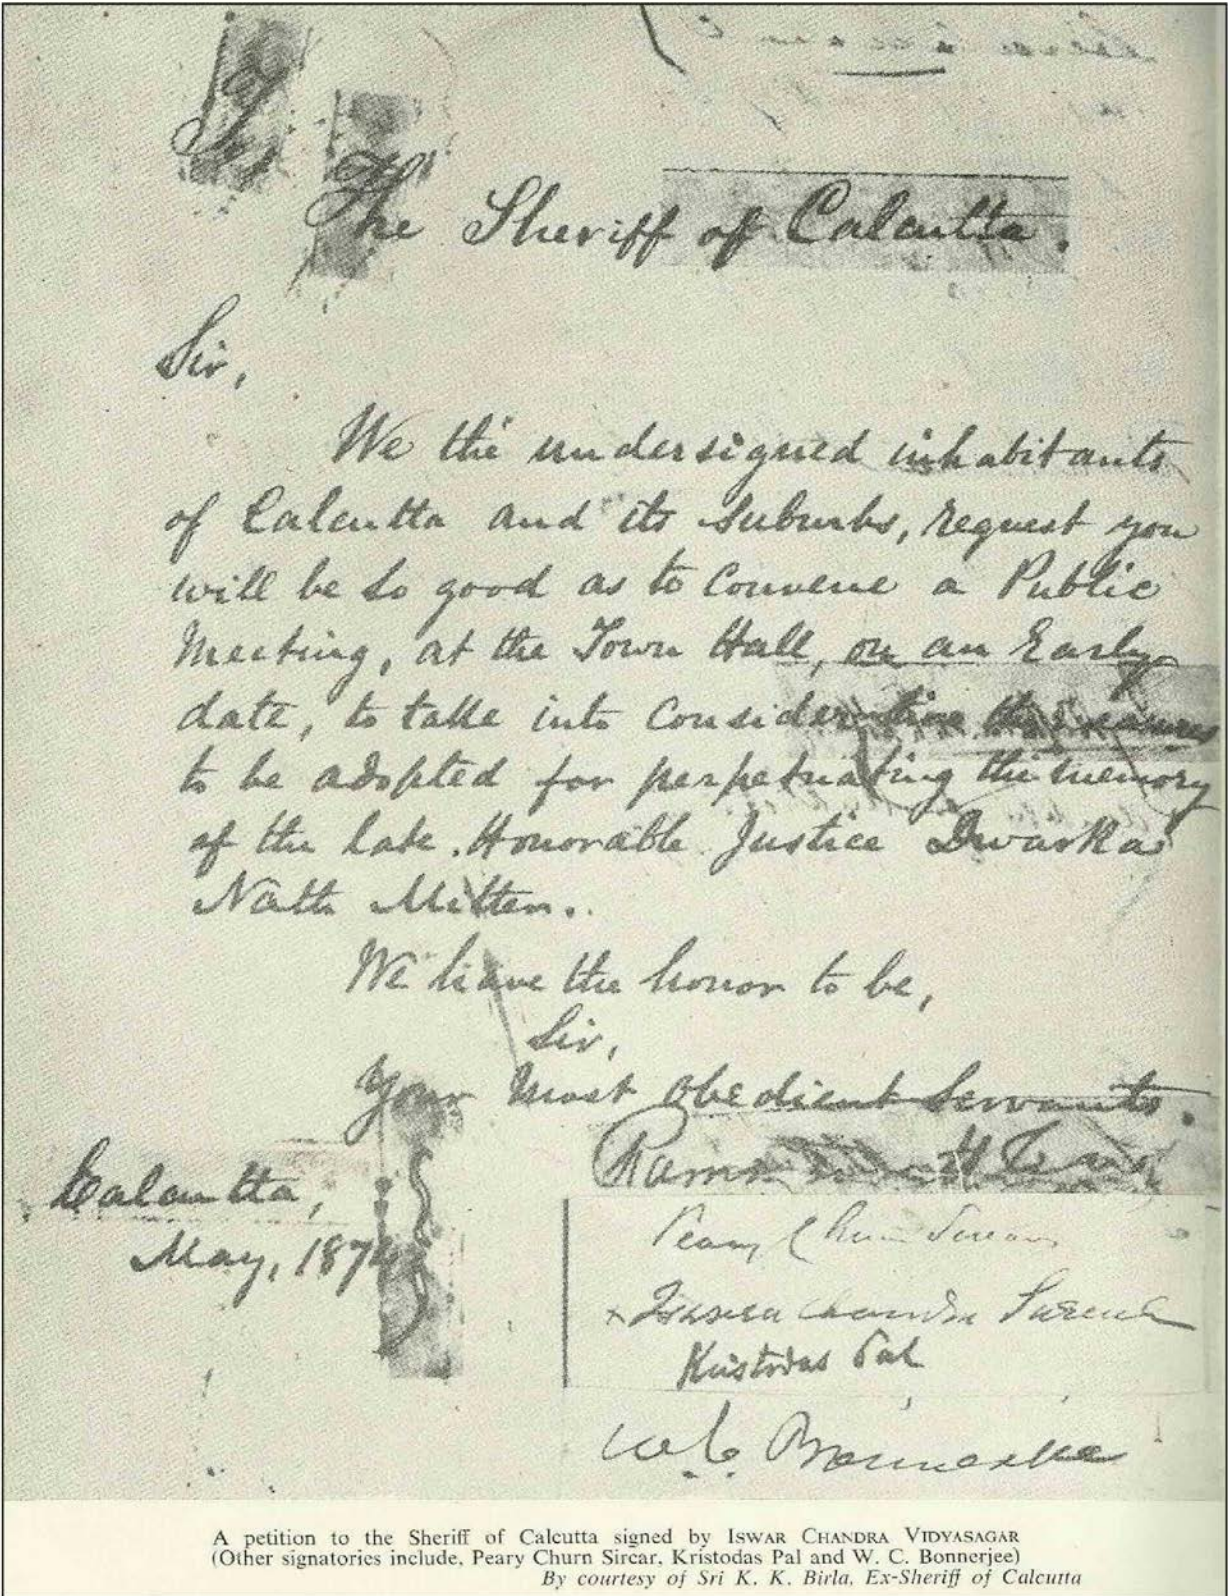 To
The Sheriff of Calcutta.
Sir,
We the undersigned inhabitants
of Calcutta and its Suburbs, request you
will be so good as to Convene a Public
Meeting, at the Town Hall, on an Early
date, to take into Consideration the measures
to be adopted for perpetuating the memory
of the late Honorable Justice Dwarka
Nath Mitter.
We have the honor to be,
Sir,
Your Most Obedient Servants.
Calcutta,
May, 1874
Peary Churn Sircar
Isswra Chandra Surmah
Kristodas Pal
W. C. Bonnerjee
A petition to the Sheriff of Calcutta signed by ISWAR CHANDRA VIDYASAGAR
(Other signatories include, Peary Churn Sircar, Kristodas Pal and W. C. Bonnerjee)
By courtesy of Sri K. K. Birla, Ex-Sheriff of Calcutta